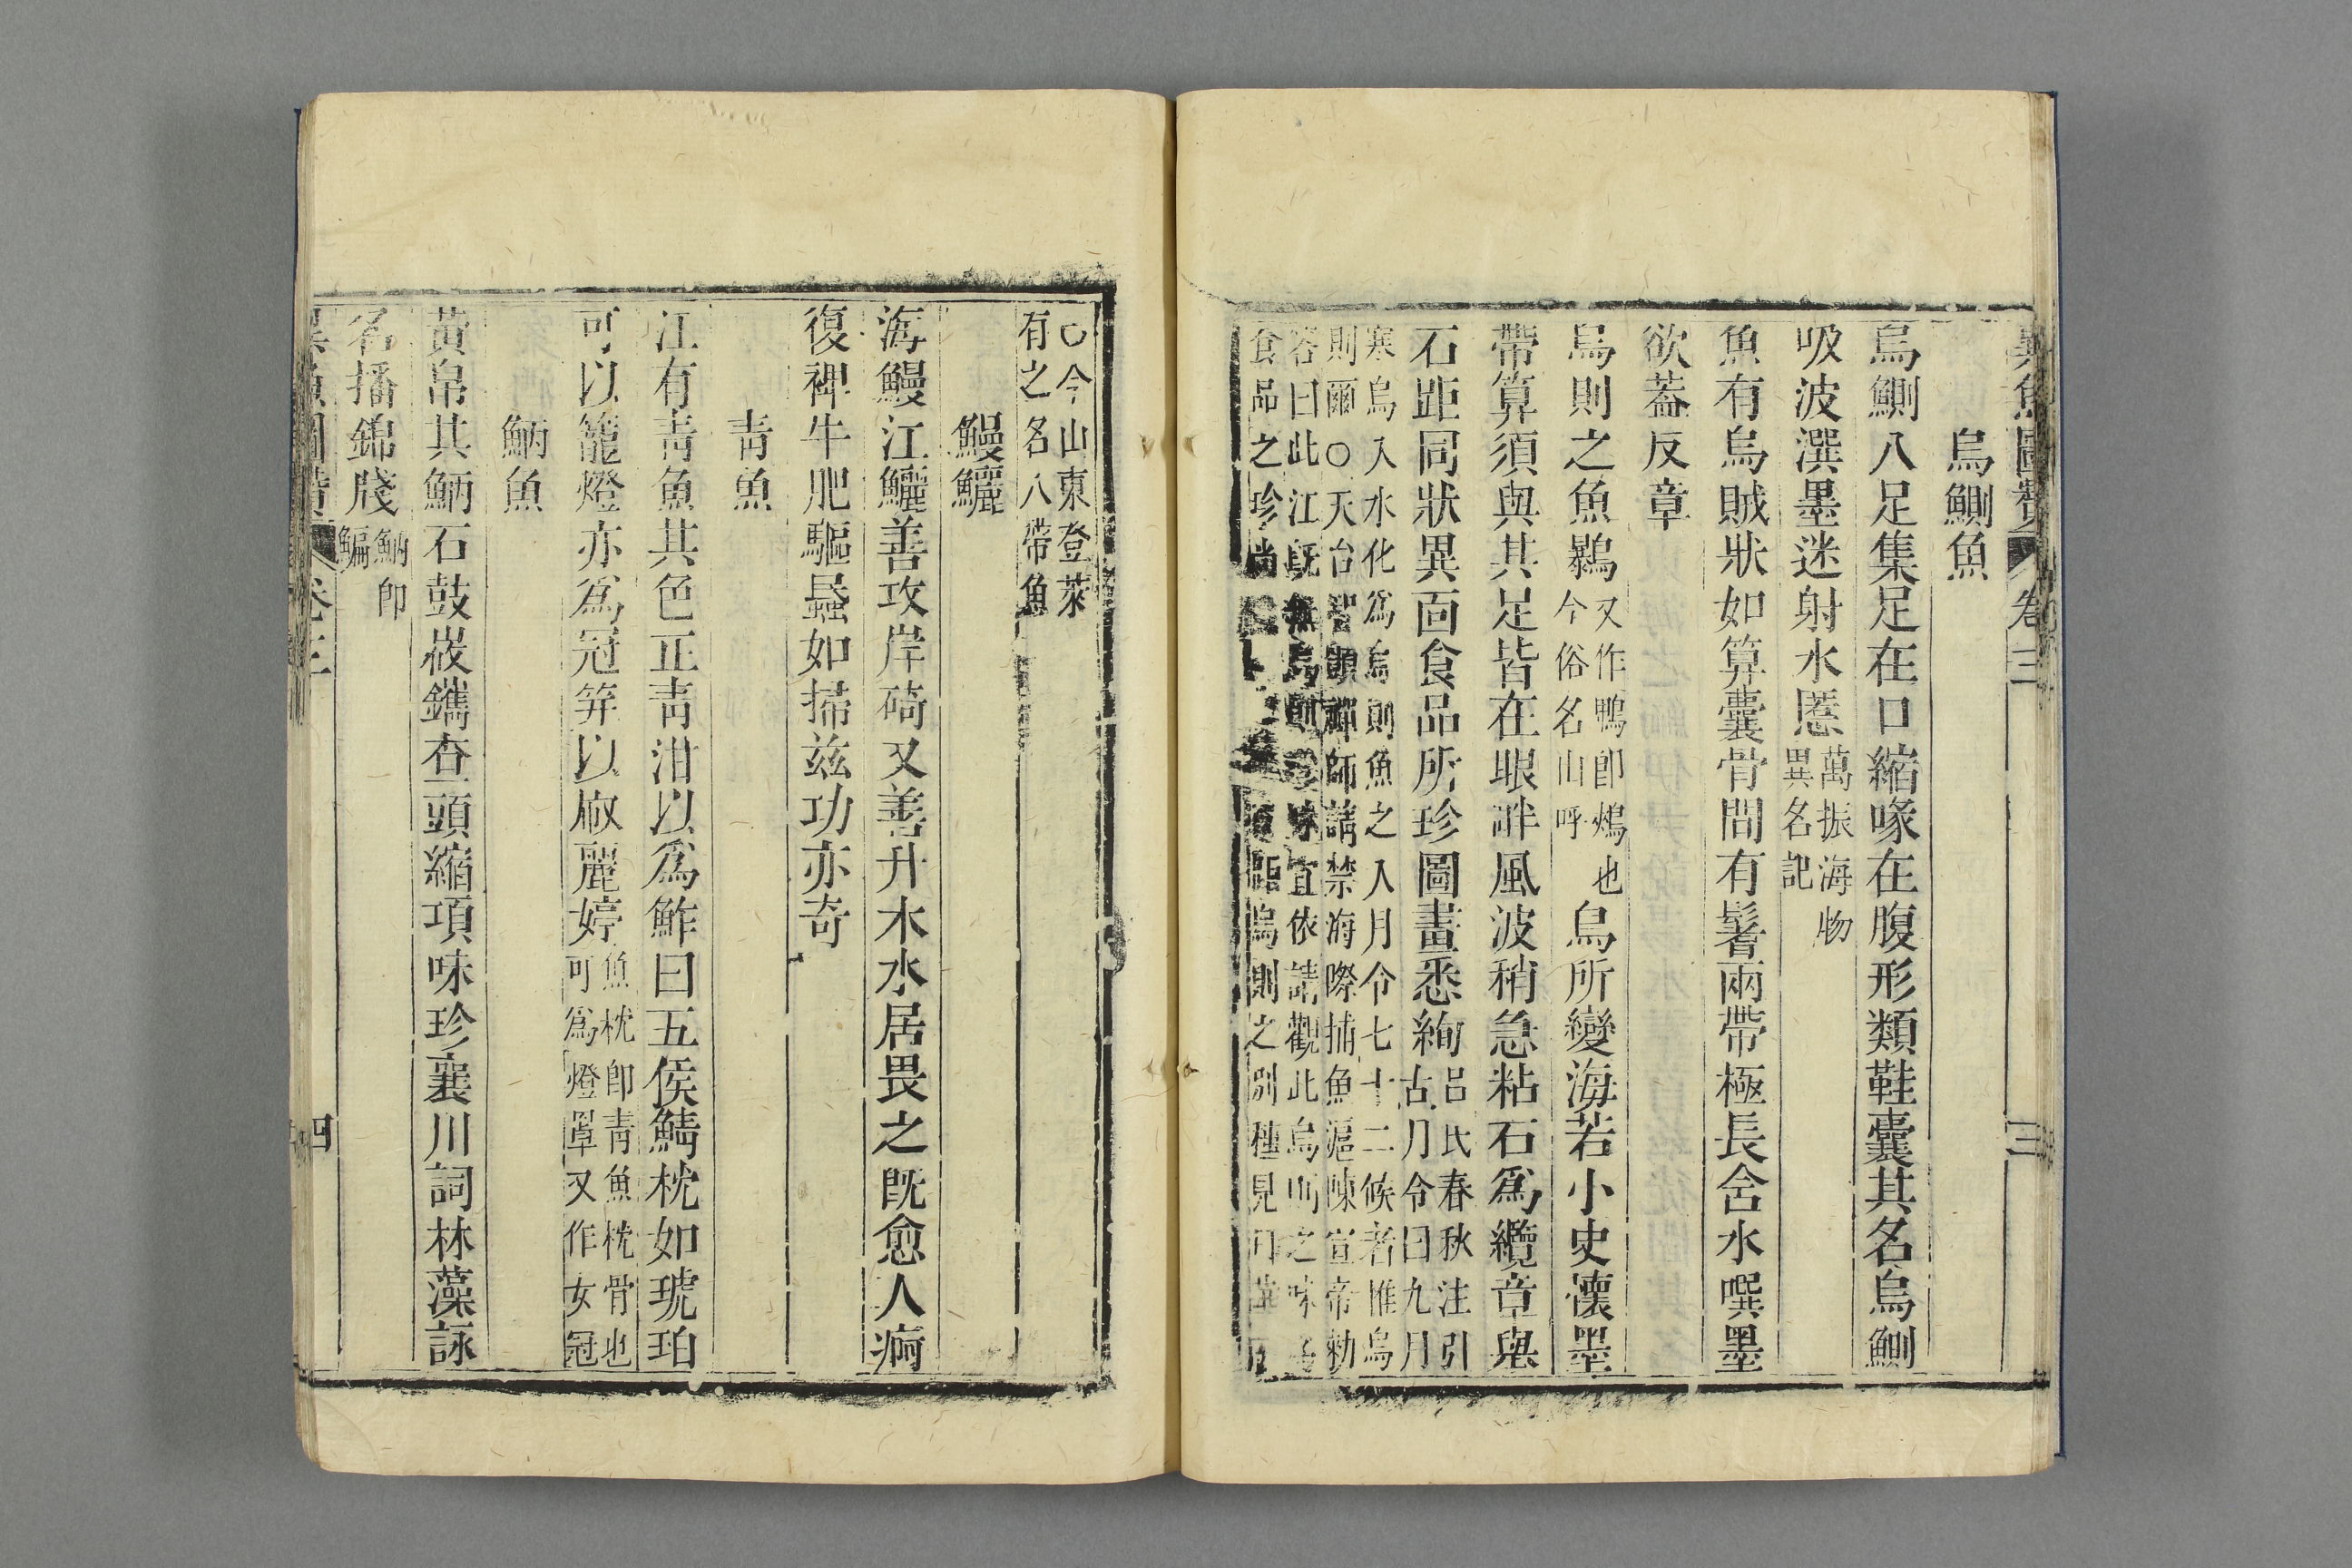 異魚圖贊 卷三 三
烏鰂魚
烏鰂八足集足在口縮喙在腹形類鞋囊其名烏鰂
吸波潠墨迷射水慝萬振海物異名記
魚有烏賊狀如算囊骨間有鬐兩帶極長含水噀墨
欲葢反章
烏則之魚鸔又作鴨卽鸆也今俗名山呼烏所變海若小史懷墨
帶算須與其足皆在眼畔風波稍急粘石爲纜章與
石距同狀異面食品所珍圖畫悉絢呂氏春秋注引古月令曰九月
寒烏入水化爲烏則魚之入月令七十二候者惟烏
則爾○天台智顗禪師請禁海際捕魚滬陳宣帝勑
答曰此江旣無烏則珍味宜依請觀此烏則之味
食品之珍尚矣 距烏則之別種見
○今山東登萊
有之名八帶魚
鰻鱺
海鰻江鱺善攻岸碕又善升木水居畏之旣愈人痾
復裨牛肥驅蟁如掃兹功亦奇
青魚
江有青魚其色正青泔以爲鮓曰五侯鯖枕如琥珀
可以籠燈亦爲冠笄以椒麗婷魚枕卽青魚枕骨也可爲燈罩又作女冠
魶魚
黃帛其魶石鼓峩鐫杳頭縮項味珍襄川詞林藻詠
名播錦牋魶卽鯿
異魚圖贊 卷三 四